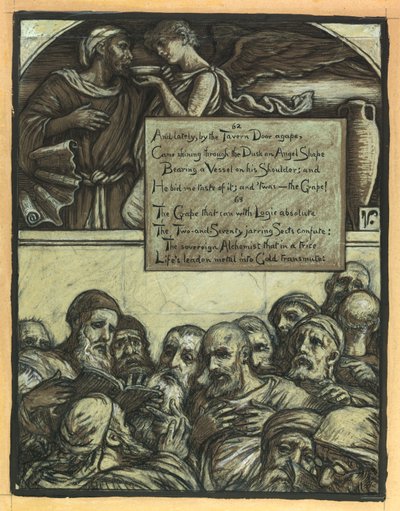 62
And lately, by the Tavern Door agape,
Came shining through the Dusk an Angel Shape
Bearing a Vessel on his Shoulder; and
He bid me taste of it; and 'twas—the Grape!
63
The Grape that can with Logic absolute
The Two-and-Seventy jarring Sects confute:
The sovereign Alchemist that in a trice
Life's leaden metal into Gold transmute:
V